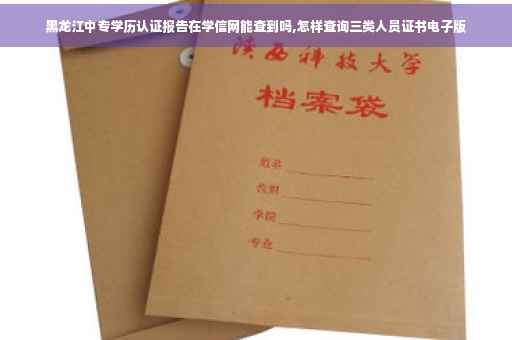 黑龙江中专学历认证报告在学信网能查到吗,怎样查询三类人员证书电子版
陕西科技大学
档案袋
姓名
性别
学院
专业